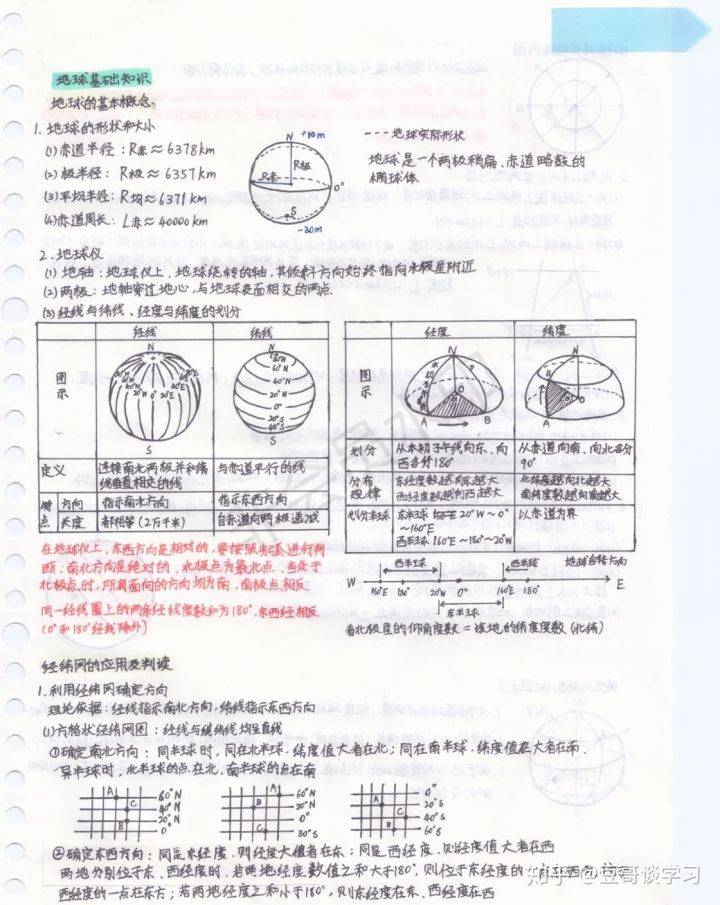 地球基础知识
地球的基本概念
1. 地球的形状和大小
(1) 赤道半径：R赤≈6378km
(2) 极半径：R极≈6357km
(3) 平均半径：R均≈6371km
(4) 赤道周长：L赤≈40000km
N +10m
R极
R赤
0°
S
-30m
--- 地球实际形状
地球是一个两极稍扁、赤道略鼓的
椭球体
2. 地球仪
(1) 地轴：地球仪上，地球绕转的轴，其倾斜方向始终指向北极星附近
(2) 两极：地轴穿过地心，与地球表面相交的两点
(3) 经线与纬线、经度与纬度的划分
经线 纬线
图示
N
S
N
60°N
40°N
20°N
0°
20°S
40°S
60°S
S
定义 连接南北两极并和纬线垂直相交的线 与赤道平行的线
特点 方向 指示南北方向 指示东西方向
长度 都相等(2万千米) 自赤道向两极递减
经度 纬度
图示
N
P
O
A
B
N
B
O
A
划分 从本初子午线向东、向西各分180° 从赤道向南、向北各分90°
分布规律 东经度数越向东越大 西经度数越向西越大 北纬度越向北越大 南纬度数越向南越大
划分半球 东半球 20°W~0°~160°E 西半球 160°E~180°~20°W 以赤道为界
在地球仪上，东西方向是相对的，要按照劣弧进行判
断；南北方向是绝对的，北极点为最北点，当处于
北极点时，所有面向的方向均为南，南极点相反
同一经线圈上的两条经线度数和为180°，东西经相反
(0°和180°经线除外)
西半球 西半球 地球自转方向
W 160°E 180° 20°W 0° 160°E 180° E
东半球
看北极星的仰角度数=该地的纬度度数(北纬)
经纬网的应用及判读
1. 利用经纬网确定方向
理论依据：经线指示南北方向，纬线指示东西方向
(1) 方格状经纬网图：经线与纬线均呈直线
①确定南北方向：同半球时，同在北半球，纬度值大者在北；同在南半球，纬度值大者在南.
异半球时，北半球的点在北、南半球的点在南
A
C
B
60°N
40°N
20°N
0°
A
B
C
60°N
30°N
0°
30°S
A
C
B
0°
20°S
40°S
60°S
②确定东西方向：同是东经度，则经度大值者在东；同是西经度，则经度值大者在西
两地分别位于东、西经度时，若两地经度数值之和大于180°，则位于东经度的一点在西方，位
西经度的一点在东方；若两地经度之和小于180°，则东经度在东、西经度在西
知乎 @豆哥谈学习